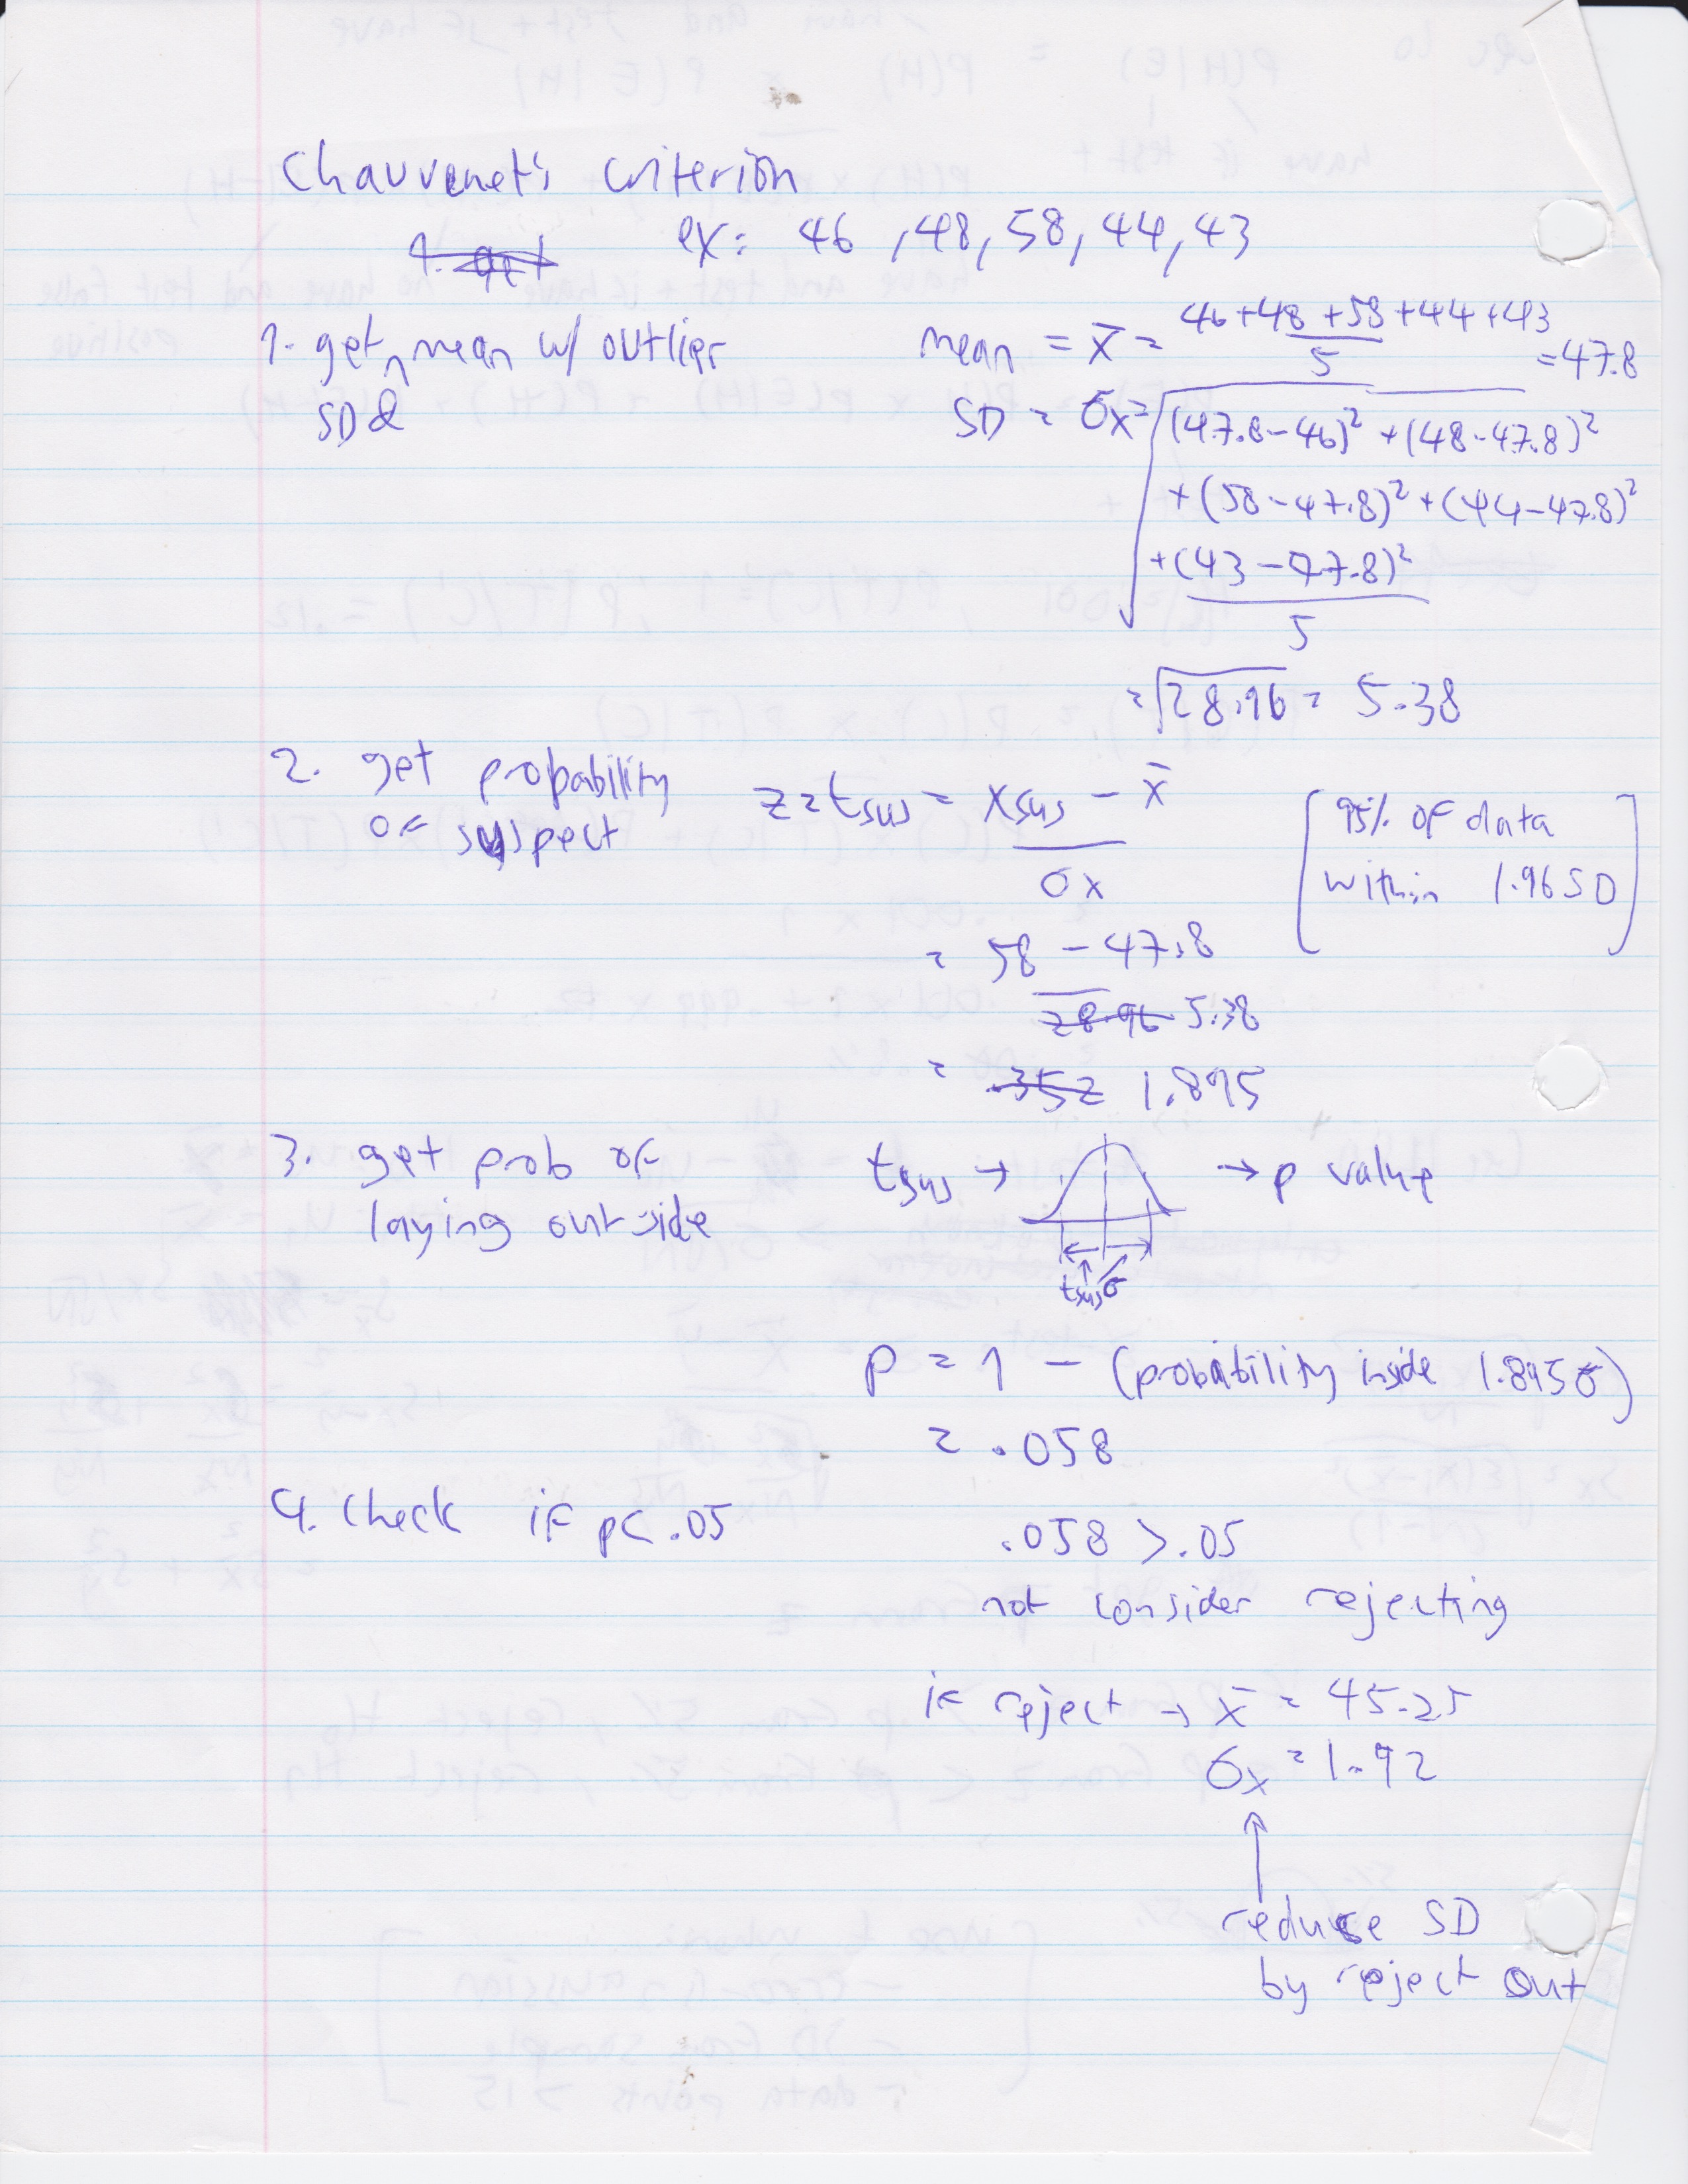 Chauvenet's criterion
ex: 46, 48, 58, 44, 43
1. get mean w/ outlier
SD &
mean = x̄ = 46+48+58+44+43 / 5 = 47.8
SD = σx = √ (47.8-46)² + (48-47.8)²
+ (58-47.8)² + (44-47.8)²
+ (43-47.8)²
5
= √28.96 = 5.38
2. get probability
of suspect
z = tsus = xsus - x̄
σx
[95% of data
within 1.96 SD]
= 58 - 47.8
28.96 5.38
= .352 1.895
3. get prob of
laying outside
tsus → → p value
tsus σ
p = 1 - (probability inside 1.895σ)
= .058
4. check if p< .05
.058 > .05
not consider rejecting
if reject → x̄ = 45.25
σx = 1.92
reduce SD
by reject out